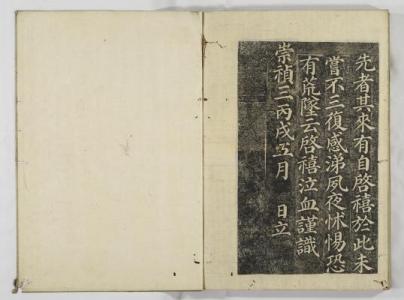 先者其來有自啓禧於此未
嘗不三復感涕夙夜怵惕恐
有荒墜云啓禧泣血謹識
崇禎三丙戌五月　日立